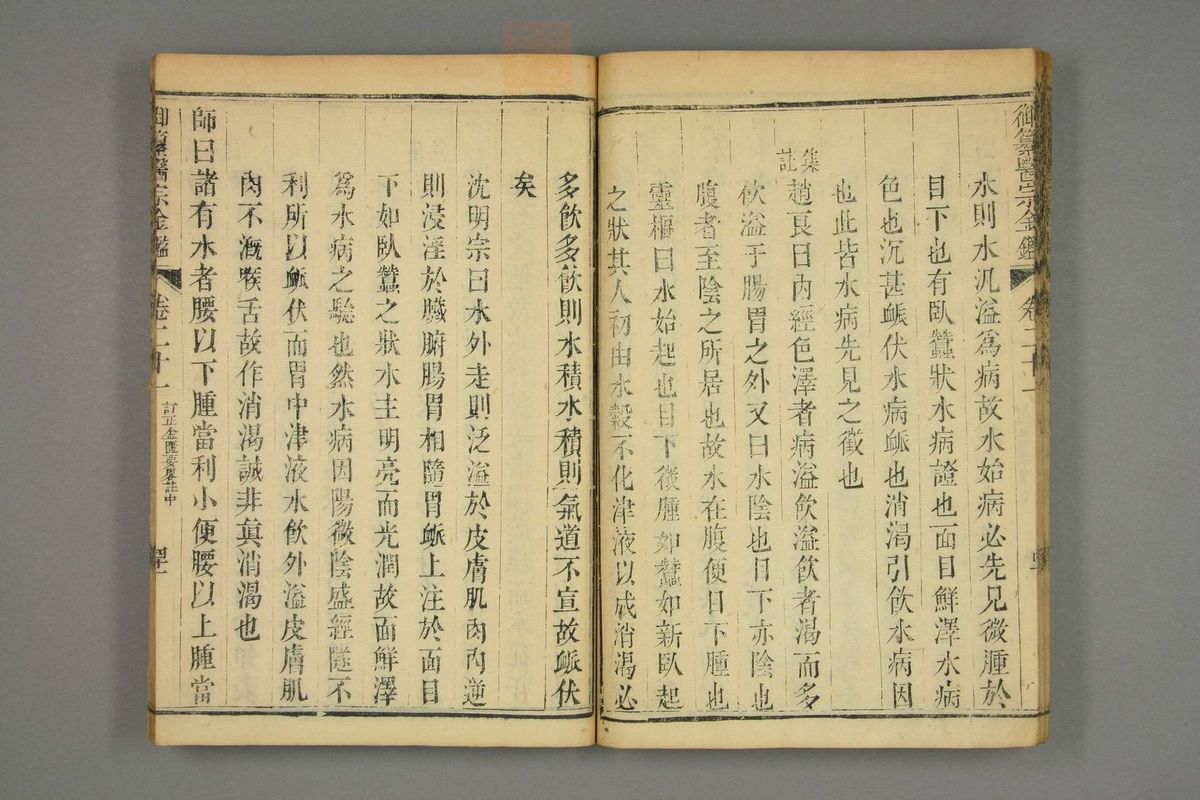 御纂醫宗金鑑
卷二十一
水則水汎溢爲病故水始病必先見微腫於
目下也有臥蠶狀水病證也面目鮮澤水病
色也沉甚脈伏水病脈也消渴引飲水病因
也此皆水病先見之徵也
集註
趙良曰內經色澤者病溢飲溢飲者渴而多
飲溢于腸胃之外又曰水陰也目下亦陰也
腹者至陰之所居也故水在腹便目下腫也
靈樞曰水始起也目下微腫如蠶如新臥起
之狀其人初由水穀不化津液以成消渴必
多飲多飲則水積水積則氣道不宣故脈伏
矣
沈明宗曰水外走則泛溢於皮膚肌肉內逆
則浸淫於臟腑腸胃相隨胃脈上注於面目
下如臥蠶之狀水主明亮而光潤故面鮮澤
爲水病之驗也然水病因陽微陰盛經隧不
利所以脈伏而胃中津液水飲外溢皮膚肌
肉不溉喉舌故作消渴誠非眞消渴也
師曰諸有水者腰以下腫當利小便腰以上腫當
御纂醫宗金鑑
卷二十一
訂正金匱要畧註中